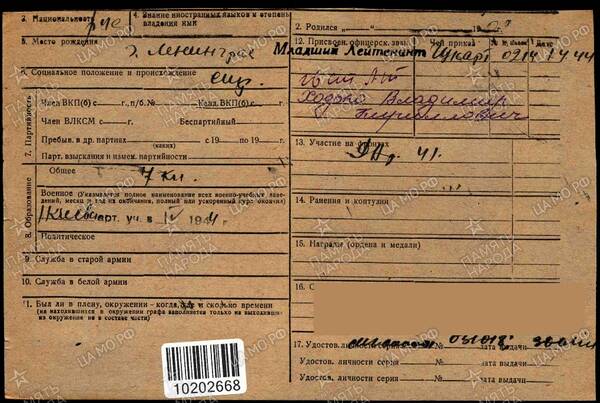 3. Национальность рус
4. Знание иностранных языков и степень владения ими
5. Место рождения г. Ленинград
6. Социальное положение и происхождение служ.
7. Партийность
Член ВКП(б) с г., п/б. № Канд. ВКП(б) с г.
Член ВЛКСМ с г. Беспартийный
Пребыв. в др. партиях с 19 по 19 г.
(каких)
Парт. взыскания и измен. партийности
8. Образование
Общее 7 кл.
Военное (Указывать полное наименование всех военно-учебных заведений, месяц и год их окончания, полный или ускоренный курс окончил)
уч. в IV 1944 г.
Политическое
9. Служба в старой армии
10. Служба в белой армии
11. Был ли в плену, окружении - когда, где и сколько времени
(на находившихся в окружении графа заполняется только на выходивших из окружения не в составе части)
10202668
2. Родился " " 19 г.
12. Присвоен. офицерск. зван. Чей приказ № Дата
Младший Лейтенант 0214 1 4 44
Ходько Владимир
Кириллович
13. Участие на фронтах
41.
14. Ранения и контузии
15. Награды (ордена и медали)
16. С
17. Удостов. личности серия № дата выдачи
Удостов. личности серия № дата выдачи
Удостов. личности серия № дата выдачи
ПАМЯТЬ НАРОДА
ЦАМО.РФ